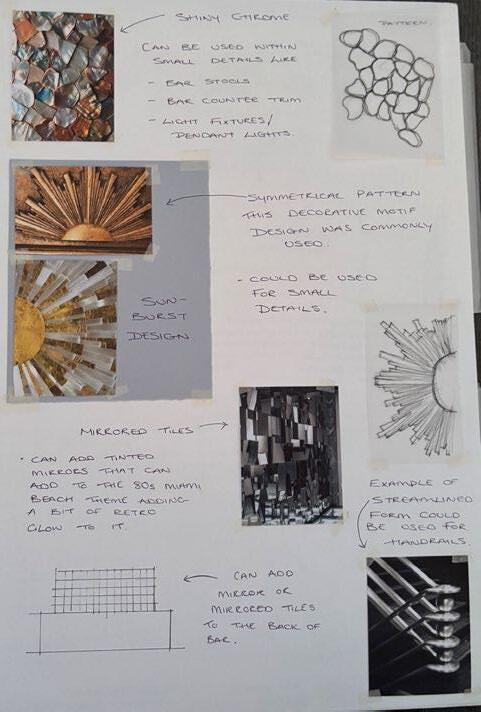 SHINY CHROME
CAN BE USED WITHIN
SMALL DETAILS LIKE
- BAR STOOLS
- BAR COUNTER TRIM
- LIGHT FIXTURES/
PENDANT LIGHTS.
PATTERN.
SYMMETRICAL PATTERN
THIS DECORATIVE MOTIF
DESIGN WAS COMMONLY
USED.
- COULD BE USED
FOR SMALL
DETAILS.
SUN-
BURST
DESIGN
MIRRORED TILES
• CAN ADD TINTED
MIRRORS THAT CAN
ADD TO THE 80s MIAMI
BEACH THEME ADDING
A BIT OF RETRO
GLOW TO IT.
EXAMPLE OF
STREAMLINED
FORM COULD
BE USED FOR
HANDRAILS.
CAN ADD
MIRROR OR
MIRRORED TILES
TO THE BACK OF
BAR.